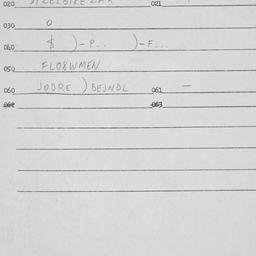 020 021
030 0
040 $ )-P.. )-F...
050 FLO8WMEN
060 JODRE ) BEJNDL 061 —
062 063